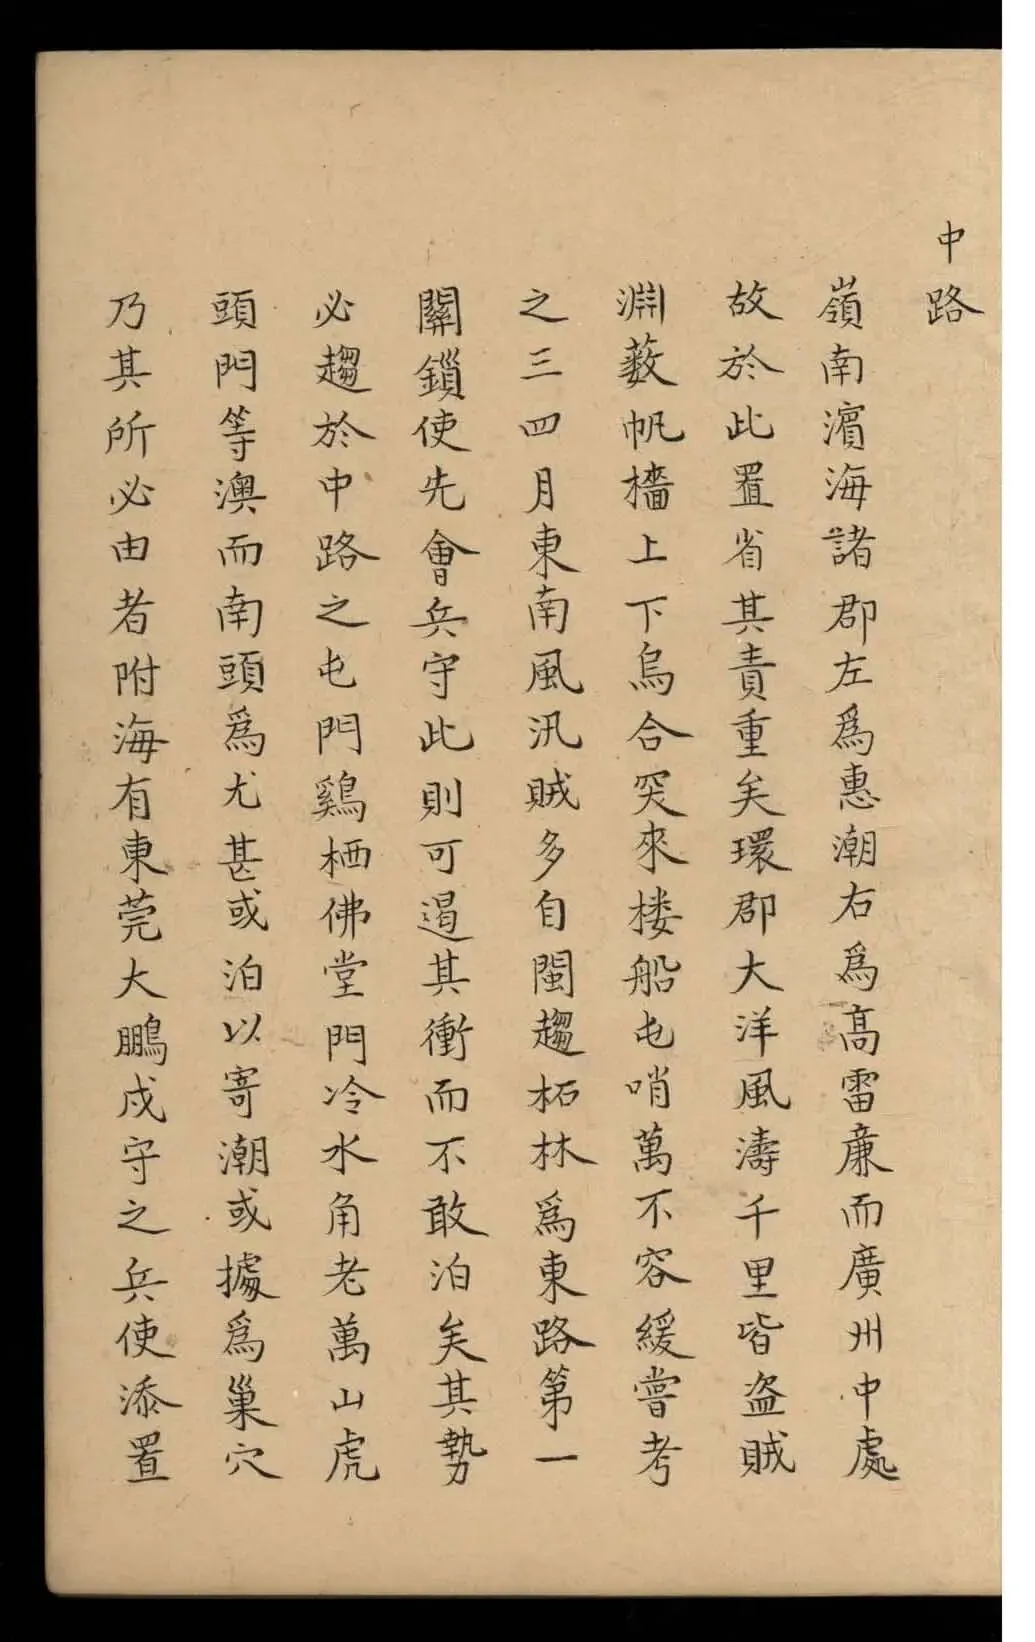 中路
嶺南濱海諸郡左爲惠潮右爲高雷廉而廣州中處
故於此置省其責重矣環郡大洋風濤千里皆盜賊
淵藪帆檣上下烏合突來楼船屯哨萬不容緩嘗考
之三四月東南風汛賊多自閩趨柘林爲東路第一
關鎖使先會兵守此則可遏其衝而不敢泊矣其勢
必趨於中路之屯門鷄栖佛堂門冷水角老萬山虎
頭門等澳而南頭爲尤甚或泊以寄潮或據爲巢穴
乃其所必由者附海有東莞大鵬戍守之兵使添置